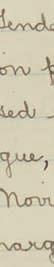 Tende
on f
sed -
gue,
Novi
marg